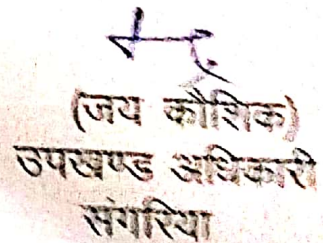 (जय कौशिक)
उपखण्ड अधिकारी
संगरिया